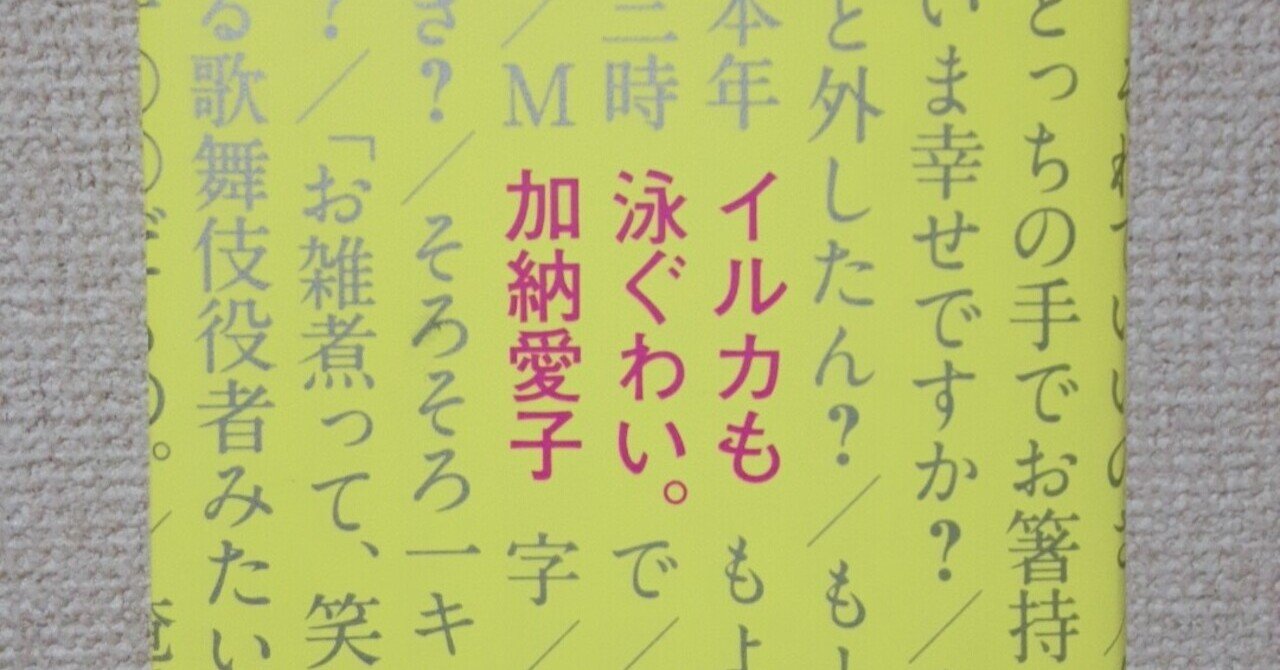 とっちの手でお箸持
いま幸せですか?/
と外したん?/もし
本年
イルカも
もよ
三時
泳ぐわい。
で/
/M
加納愛子
字/
さ?/そろそろ一キ
?/「お雑煮って、笑
る歌舞伎役者みたい